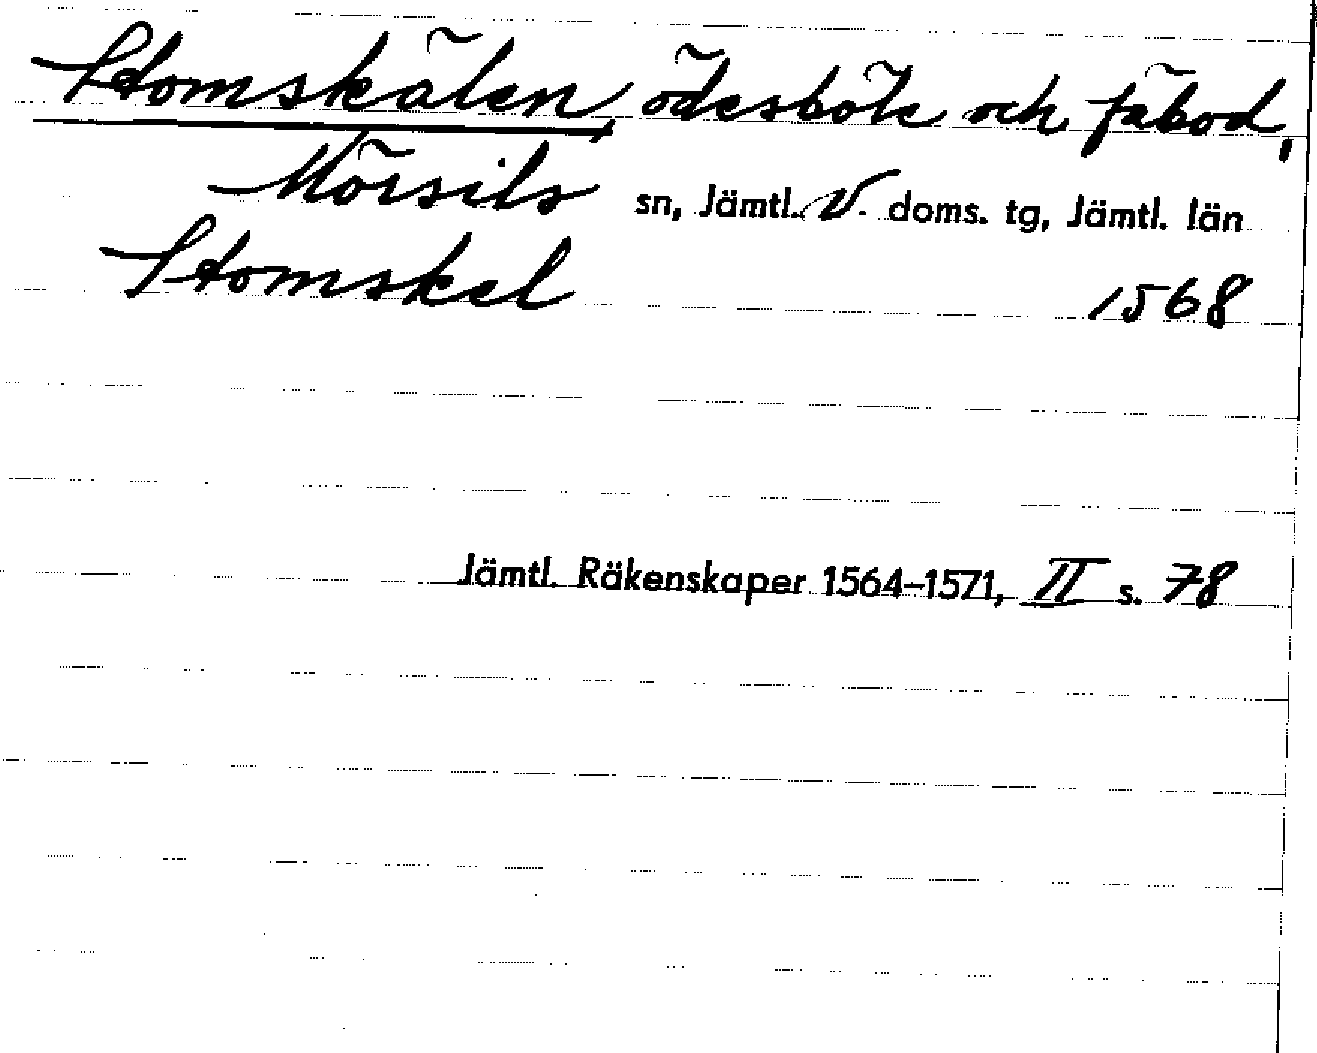 Stomskälen, ödesböle och fäbod,
Mörsils sn, Jämtl. V. doms. tg, Jämtl. län
Stomskel 1568
Jämtl. Räkenskaper 1564–1571, II s. 78